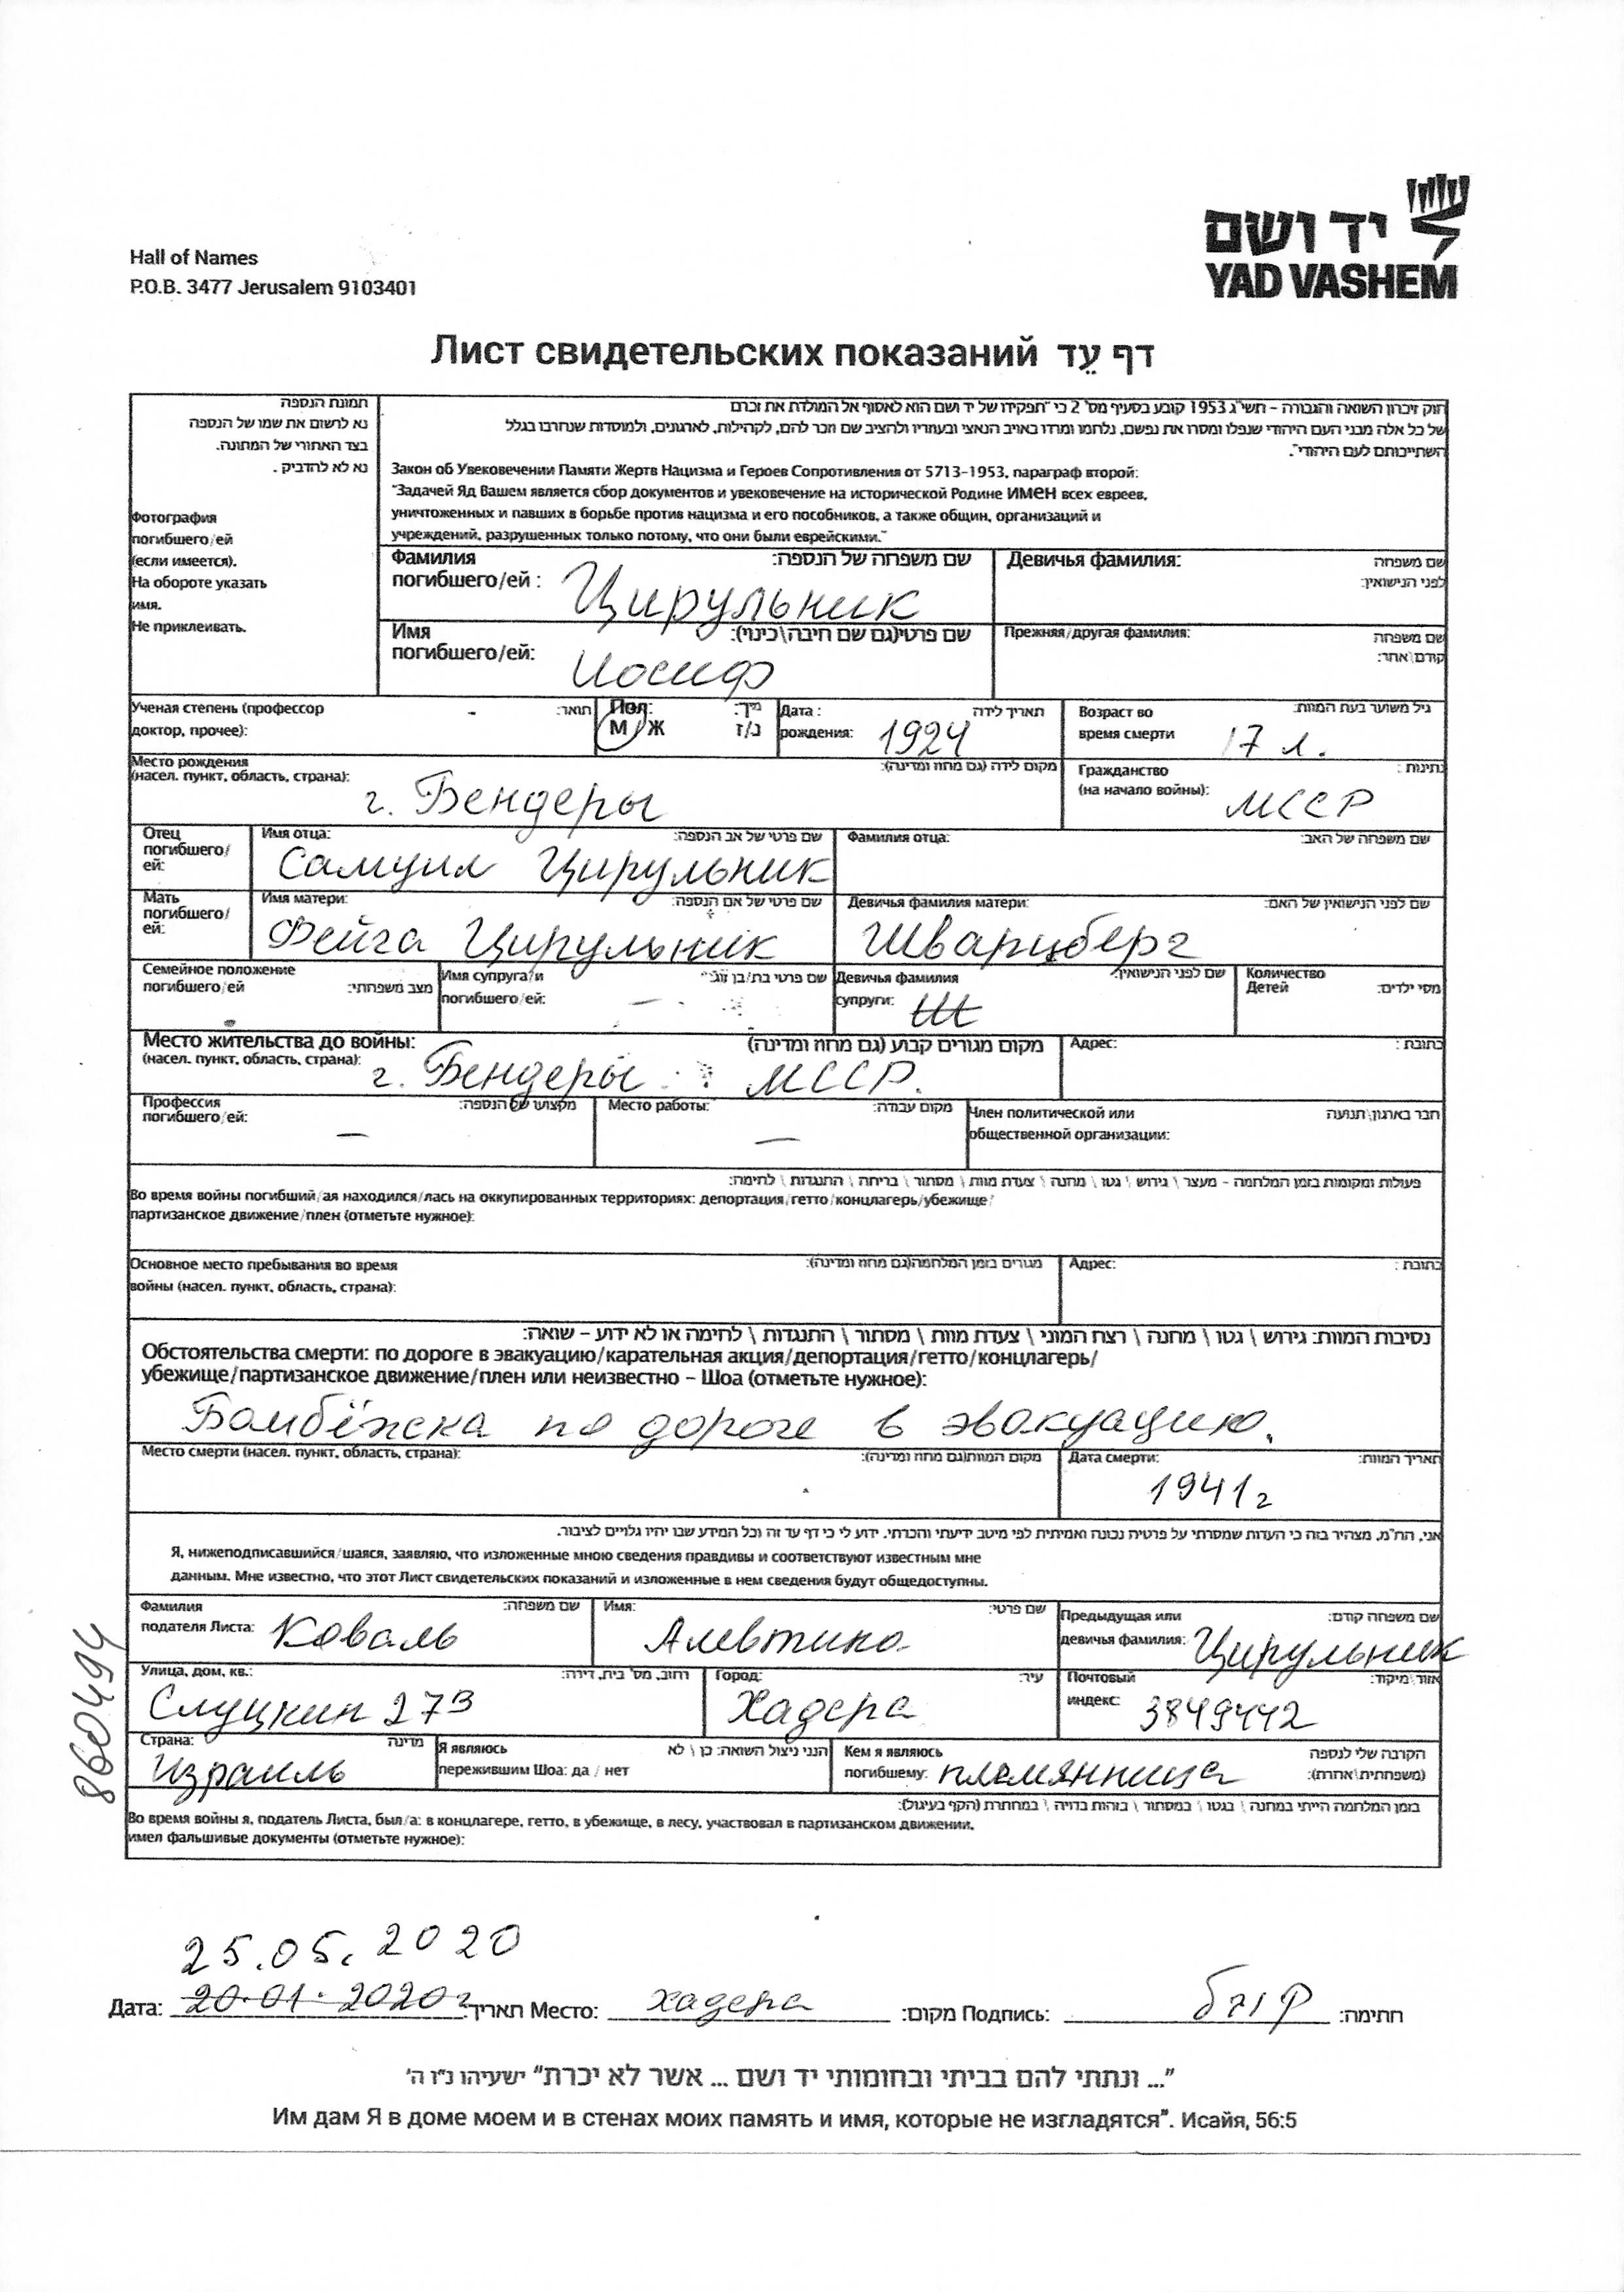 יד ושם
YAD VASHEM
Hall of Names
P.O.B. 3477 Jerusalem 9103401
Лист свидетельских показаний דף עֵד
תמונת הנספה
נא לרשום את שמו של הנספה
בצד האחורי של המתונה.
נא לא להדביק .
Фотография
погибшего/ей
(если имеется).
На обороте указать
имя.
Не приклеивать.
חוק זיכרון השואה והגבורה – תשי"ג 1953 קובע בסעיף מס' 2 כי "תפקידו של יד ושם הוא לאסוף אל המולדת את זכרם
של כל אלה מבני העם היהודי שנפלו ומסרו את נפשם, נלחמו ומרדו באויב הנאצי ובעוזריו ולהציב שם וזכר להם, לקהילות, לארגונים, ולמוסדות שנחרבו בגלל
השתייכותם לעם היהודי".
Закон об Увековечении Памяти Жертв Нацизма и Героев Сопротивления от 5713-1953, параграф второй:
"Задачей Яд Вашем является сбор документов и увековечение на исторической Родине имен всех евреев,
уничтоженных и павших в борьбе против нацизма и его пособников, а также общин, организаций и
учреждений, разрушенных только потому, что они были еврейскими."
Фамилия שם משפחה של הנספה:
погибшего/ей : Цирульник
Девичья фамилия: שם משפחה
לפני הנישואין:
Имя שם פרטי(גם שם חיבה\כינוי):
погибшего/ей: Иосиф
Прежняя/другая фамилия: שם משפחה
קודם\אחר:
Ученая степень (профессор - תואר:
доктор, прочее):
Пол: מין:
М/Ж ז/נ
Дата : תאריך לידה
рождения: 1924
Возраст во גיל משוער בעת המוות:
время смерти 17 л.
Место рождения מקום לידה (גם מחוז ומדינה):
(насел. пункт, область, страна):
г. Бендеры
Гражданство נתינות :
(на начало войны): МССР
Отец
погибшего/
ей:
Имя отца: שם פרטי של אב הנספה:
Самуил Цирульник
Фамилия отца: שם משפחה של האב:
Мать
погибшего/
ей:
Имя матери: שם פרטי של אם הנספה:
Фейга Цирульник
Девичья фамилия матери: שם לפני הנישואין של האם:
Шварцберг
Семейное положение
погибшего/ей מצב משפחתי:
Имя супруга/и שם פרטי בת/בן זוג:
погибшего/ей: —
Девичья фамилия שם לפני הנישואין:
супруги:
Количество
Детей מס' ילדים:
Место жительства до войны: מקום מגורים קבוע (גם מחוז ומדינה)
(насел. пункт, область, страна): г. Бендеры МССР.
Адрес: כתובת :
Профессия מקצועו של הנספה:
погибшего/ей: —
Место работы: מקום עבודה:
—
Член политической или חבר בארגון\תנועה
общественной организации:
פעולות ומקומות בזמן המלחמה – מעצר \ גירוש \ גטו \ מחנה \ צעדת מוות \ מסתור \ בריחה \ התנגדות \ לחימה:
Во время войны погибший/ая находился/лась на оккупированных территориях: депортация/гетто/концлагерь/убежище/
партизанское движение/плен (отметьте нужное):
Основное место пребывания во время מגורים בזמן המלחמה(גם מחוז ומדינה):
войны (насел. пункт, область, страна):
Адрес: כתובת :
נסיבות המוות: גירוש \ גטו \ מחנה \ רצח המוני \ צעדת מוות \ מסתור \ התנגדות \ לחימה או לא ידוע – שואה:
Обстоятельства смерти: по дороге в эвакуацию/карательная акция/депортация/гетто/концлагерь/
убежище/партизанское движение/плен или неизвестно – Шоа (отметьте нужное):
Бомбёжка по дороге в эвакуацию.
Место смерти (насел. пункт, область, страна): מקום המוות(גם מחוז ומדינה):
Дата смерти: תאריך המוות:
1941 г
אני, הח"מ, מצהיר בזה כי העדות שמסרתי על פרטיה נכונה ואמיתית לפי מיטב ידיעתי והכרתי. ידוע לי כי דף עד זה וכל המידע שבו יהיו גלויים לציבור.
Я, нижеподписавшийся/шаяся, заявляю, что изложенные мною сведения правдивы и соответствуют известным мне
данным. Мне известно, что этот Лист свидетельских показаний и изложенные в нем сведения будут общедоступны.
Фамилия שם משפחה:
подателя Листа: Коваль
Имя: שם פרטי:
Алевтина
Предыдущая или שם משפחה קודם:
девичья фамилия: Цирульник
Улица, дом, кв.: רחוב, מס' בית, דירה:
Слуцкин 27В
Город: עיר:
Хадера
Почтовый אזור\מיקוד:
индекс: 3849442
Страна: מדינה
Израиль
Я являюсь הנני ניצול השואה: כן \ לא
пережившим Шоа: да / нет
Кем я являюсь הקרבה שלי לנספה
погибшему: племянница (משפחתית\אחרת):
בזמן המלחמה הייתי במחנה \ בגטו \ במסתור \ בזהות בדויה \ במחתרת (הקף בעיגול):
Во время войны я, податель Листа, был/а: в концлагере, гетто, в убежище, в лесу, участвовал в партизанском движении,
имел фальшивые документы (отметьте нужное):
8660494
25.05.2020
Дата: 20.01.2020 г תאריך Место: хадера מקום: Подпись: חתימה:
"... ונתתי להם בביתי ובחומותי יד ושם ... אשר לא יכרת" ישעיהו נ"ו ה'
Им дам Я в доме моем и в стенах моих память и имя, которые не изгладятся". Исайя, 56:5